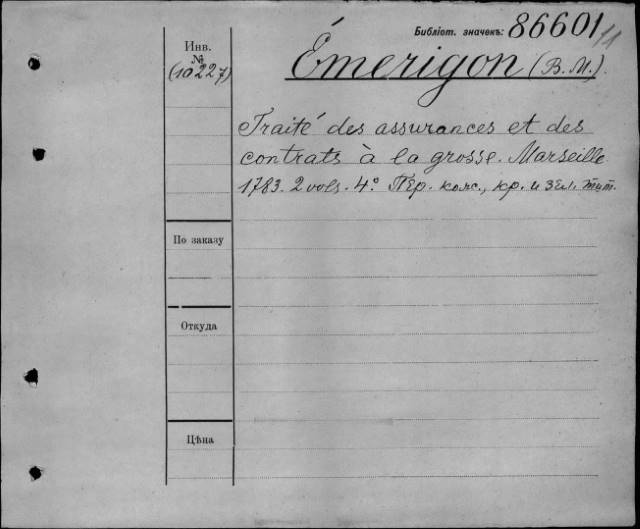 Библіот. значекъ: 86601/11
Инв.
№
(10227)
Émerigon (B. M.).
Traité des assurances et des
contrats à la grosse. Marseille
1783. 2 vols. 4º Пер. кожс., кр. и зел. тит.
По заказу
Откуда
Цѣна